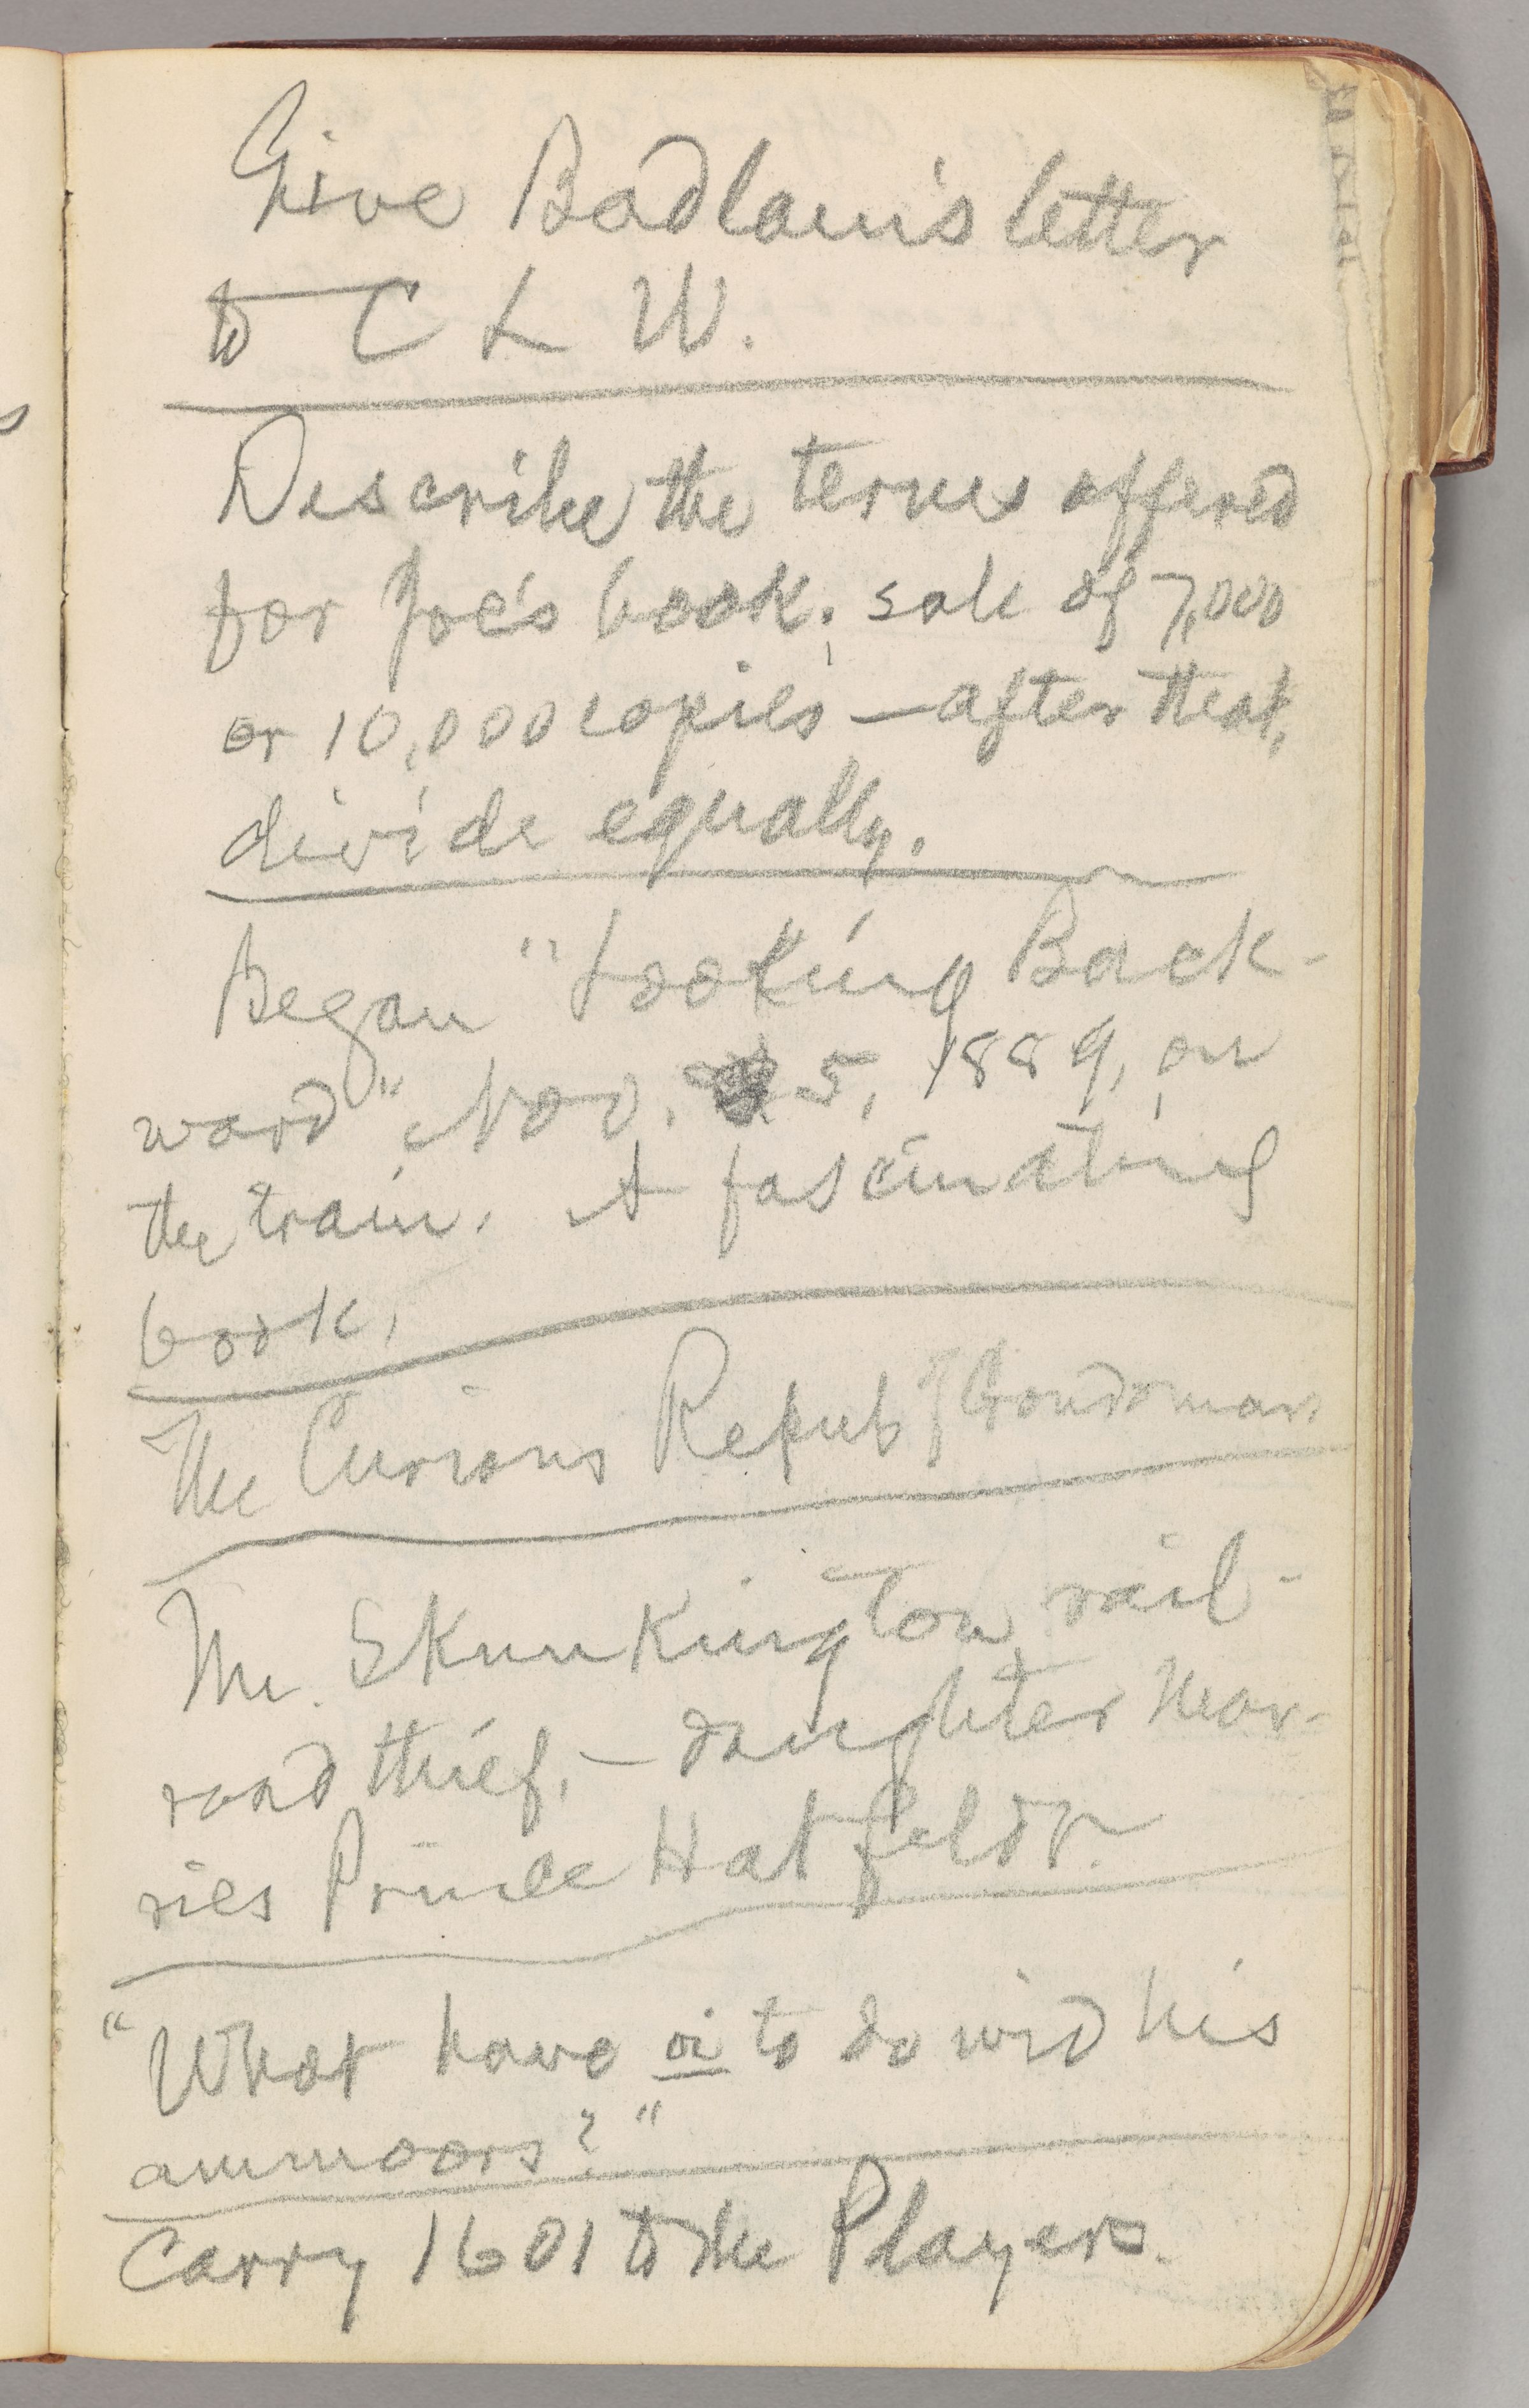 Give Badlam's letter
to C L W.
Describe the terms offered
for Joe's book; sale of 7,000
or 10,000 copies—after that,
divide equally.
Began "Looking Back-
ward" Nov. 5, 1889, on
the train. A fascinating
book.
The Curious Repub of Gondour
Mr. Skunkington rail-
road thief,—daughter mar-
ries Prince Hatfeldt.
"What have oi to do wid his
ammoors?"
Carry 1601 to the Players.